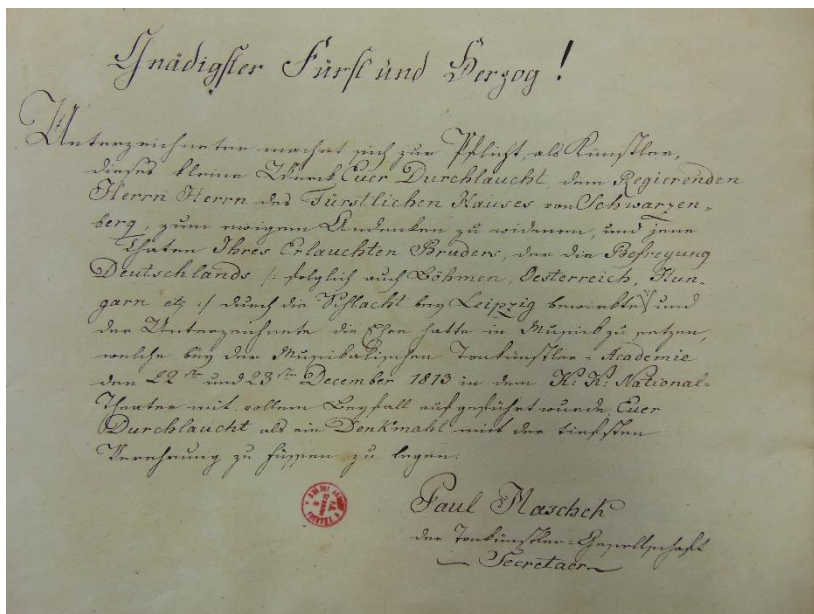 Gnädigster Fürst und Herzog!
Unterzeichneter machet sich zur Pflicht, als Künstler,
dieses kleine Werk Euer Durchlaucht, dem Regierenden
Herrn Herrn des Fürstlichen Hauses von Schwarzen-
berg, zum ewigem Andenken zu widmen, und jene
Thaten Ihres Erlauchten Bruders, der die Befreyung
Deutschlands /: folglich auch Böhmen, Oesterreich, Hun-
garn etc :/ durch die Schlacht bey Leipzig bewirkte, und
der Unterzeichnete die Ehre hatte in Musick zu setzen,
welche bey der Musikalischen Tonkünstler-Academie
den 22ten und 23ten December 1813 in dem K: K: National-
Theater mit vollem Beyfall aufgeführt wurde, Euer
Durchlaucht als ein Denkmahl mit der tiefsten
Verehrung zu füssen zu legen.
Paul Maschek
der Tonkünstler-Gesellschaft
Secretaer